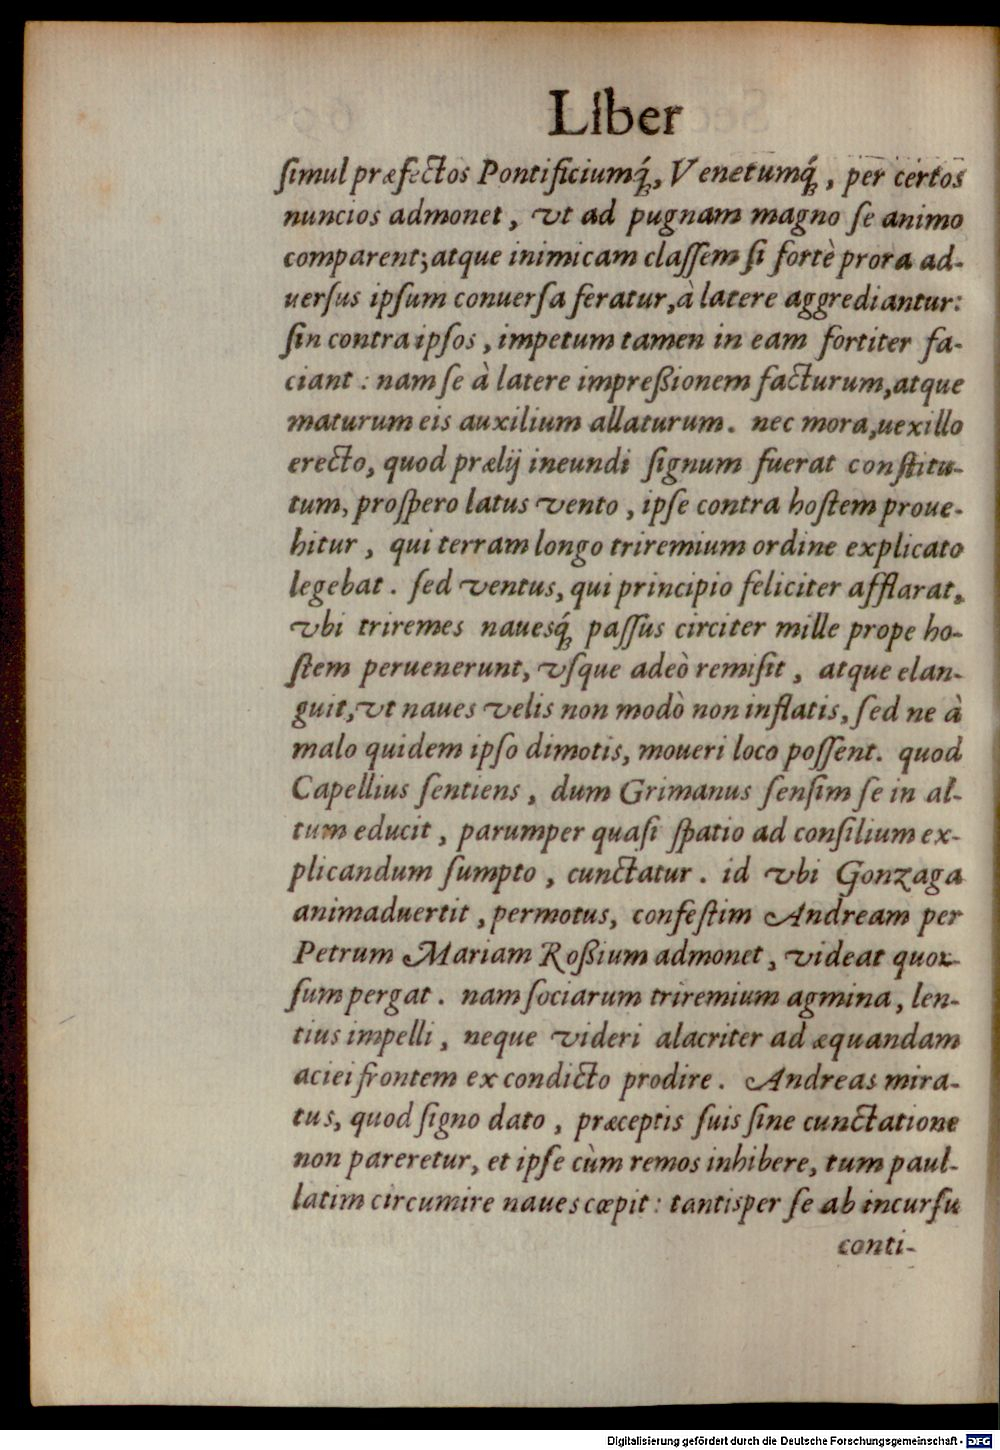 Liber
ſimul præfectos Pontificiumq́;, Venetumq́;, per certos
nuncios admonet, vt ad pugnam magno ſe animo
comparent; atque inimicam claſſem ſi fortè prora ad-
uerſus ipſum conuerſa feratur, à latere aggrediantur:
ſin contra ipſos, impetum tamen in eam fortiter fa-
ciant: nam ſe à latere impreßionem facturum, atque
maturum eis auxilium allaturum. nec mora, uexillo
erecto, quod prælij ineundi ſignum fuerat conſtitu-
tum, proſpero latus vento, ipſe contra hoſtem proue-
hitur, qui terram longo triremium ordine explicato
legebat. ſed ventus, qui principio feliciter afflarat,
vbi triremes naueſq́; paſſus circiter mille prope ho-
ſtem peruenerunt, vſque adeò remiſit, atque elan-
guit, vt naues velis non modò non inflatis, ſed ne à
malo quidem ipſo dimotis, moueri loco poſſent. quod
Capellius ſentiens, dum Grimanus ſenſim ſe in al-
tum educit, parumper quaſi ſpatio ad conſilium ex-
plicandum ſumpto, cunctatur. id vbi Gonzaga
animaduertit, permotus, confeſtim Andream per
Petrum Mariam Roßium admonet, videat quor-
ſum pergat. nam ſociarum triremium agmina, len-
tius impelli, neque videri alacriter ad æquandam
aciei frontem ex condicto prodire. Andreas mira-
tus, quod ſigno dato, præceptis ſuis ſine cunctatione
non pareretur, et ipſe cùm remos inhibere, tum paul-
latim circumire naues cœpit: tantisper ſe ab incurſu
conti-
Digitalisierung gefördert durch die Deutsche Forschungsgemeinschaft - DFG